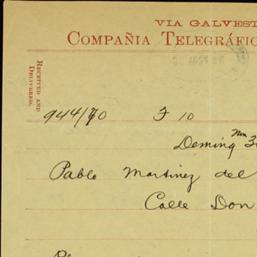 VIA GALVEST
COMPAÑIA TELEGRÁFIC
RECEIVED AND
DELIVERED.
944/70 F 10
Deming Nm 3
Pablo Martinez del
Calle Don